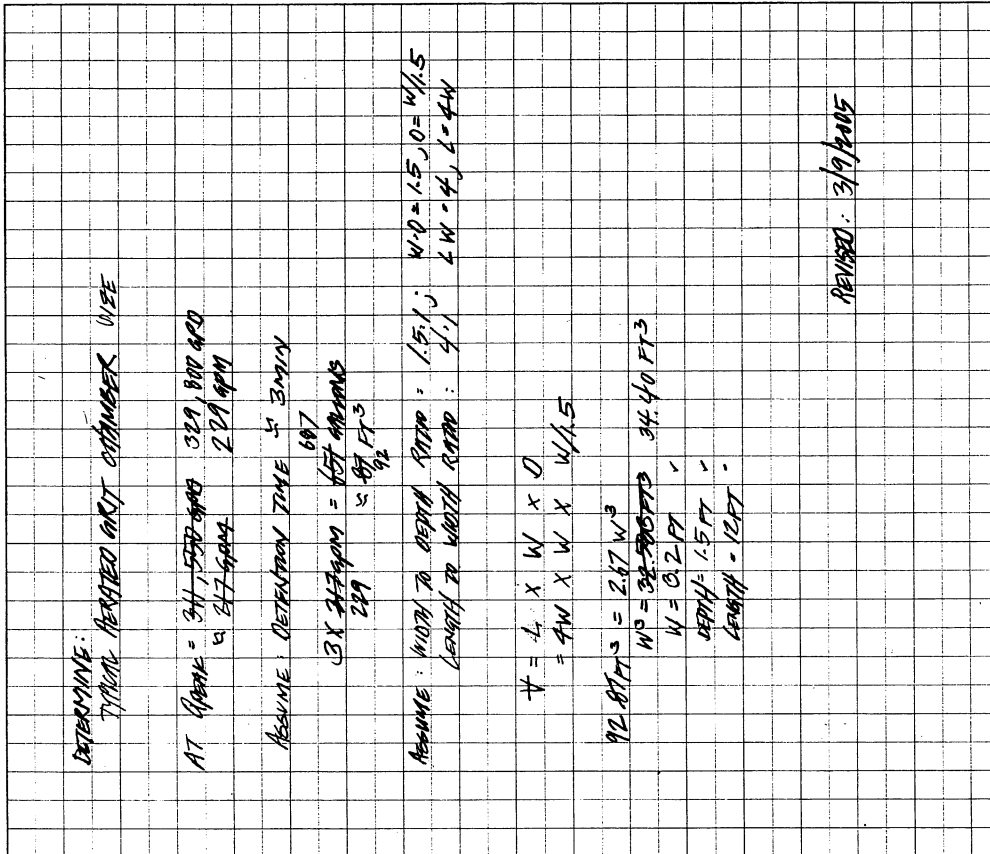 DETERMINE:
TYPICAL AERATED GRIT CHAMBER SIZE
AT QPEAK = 311,550 GPD 329,800 GPD
≈ 217 GPM 229 GPM
ASSUME: DETENTION TIME ≈ 3 MIN
687
3 X 217 GPM = 651 GALLONS
229 ≈ 87 FT3
92
ASSUME: WIDTH TO DEPTH RATIO = 1.5:1; W:D = 1.5, D = W/1.5
LENGTH TO WIDTH RATIO: 4:1 L W = 4, L = 4W
V = L X W X D
= 4W X W X W/1.5
92 87 FT3 = 2.67 W3
W3 = FT3 34.40 FT3
W = 3.2 FT
DEPTH = 1.5 FT
LENGTH = 12 FT
REVISED: 3/9/2005